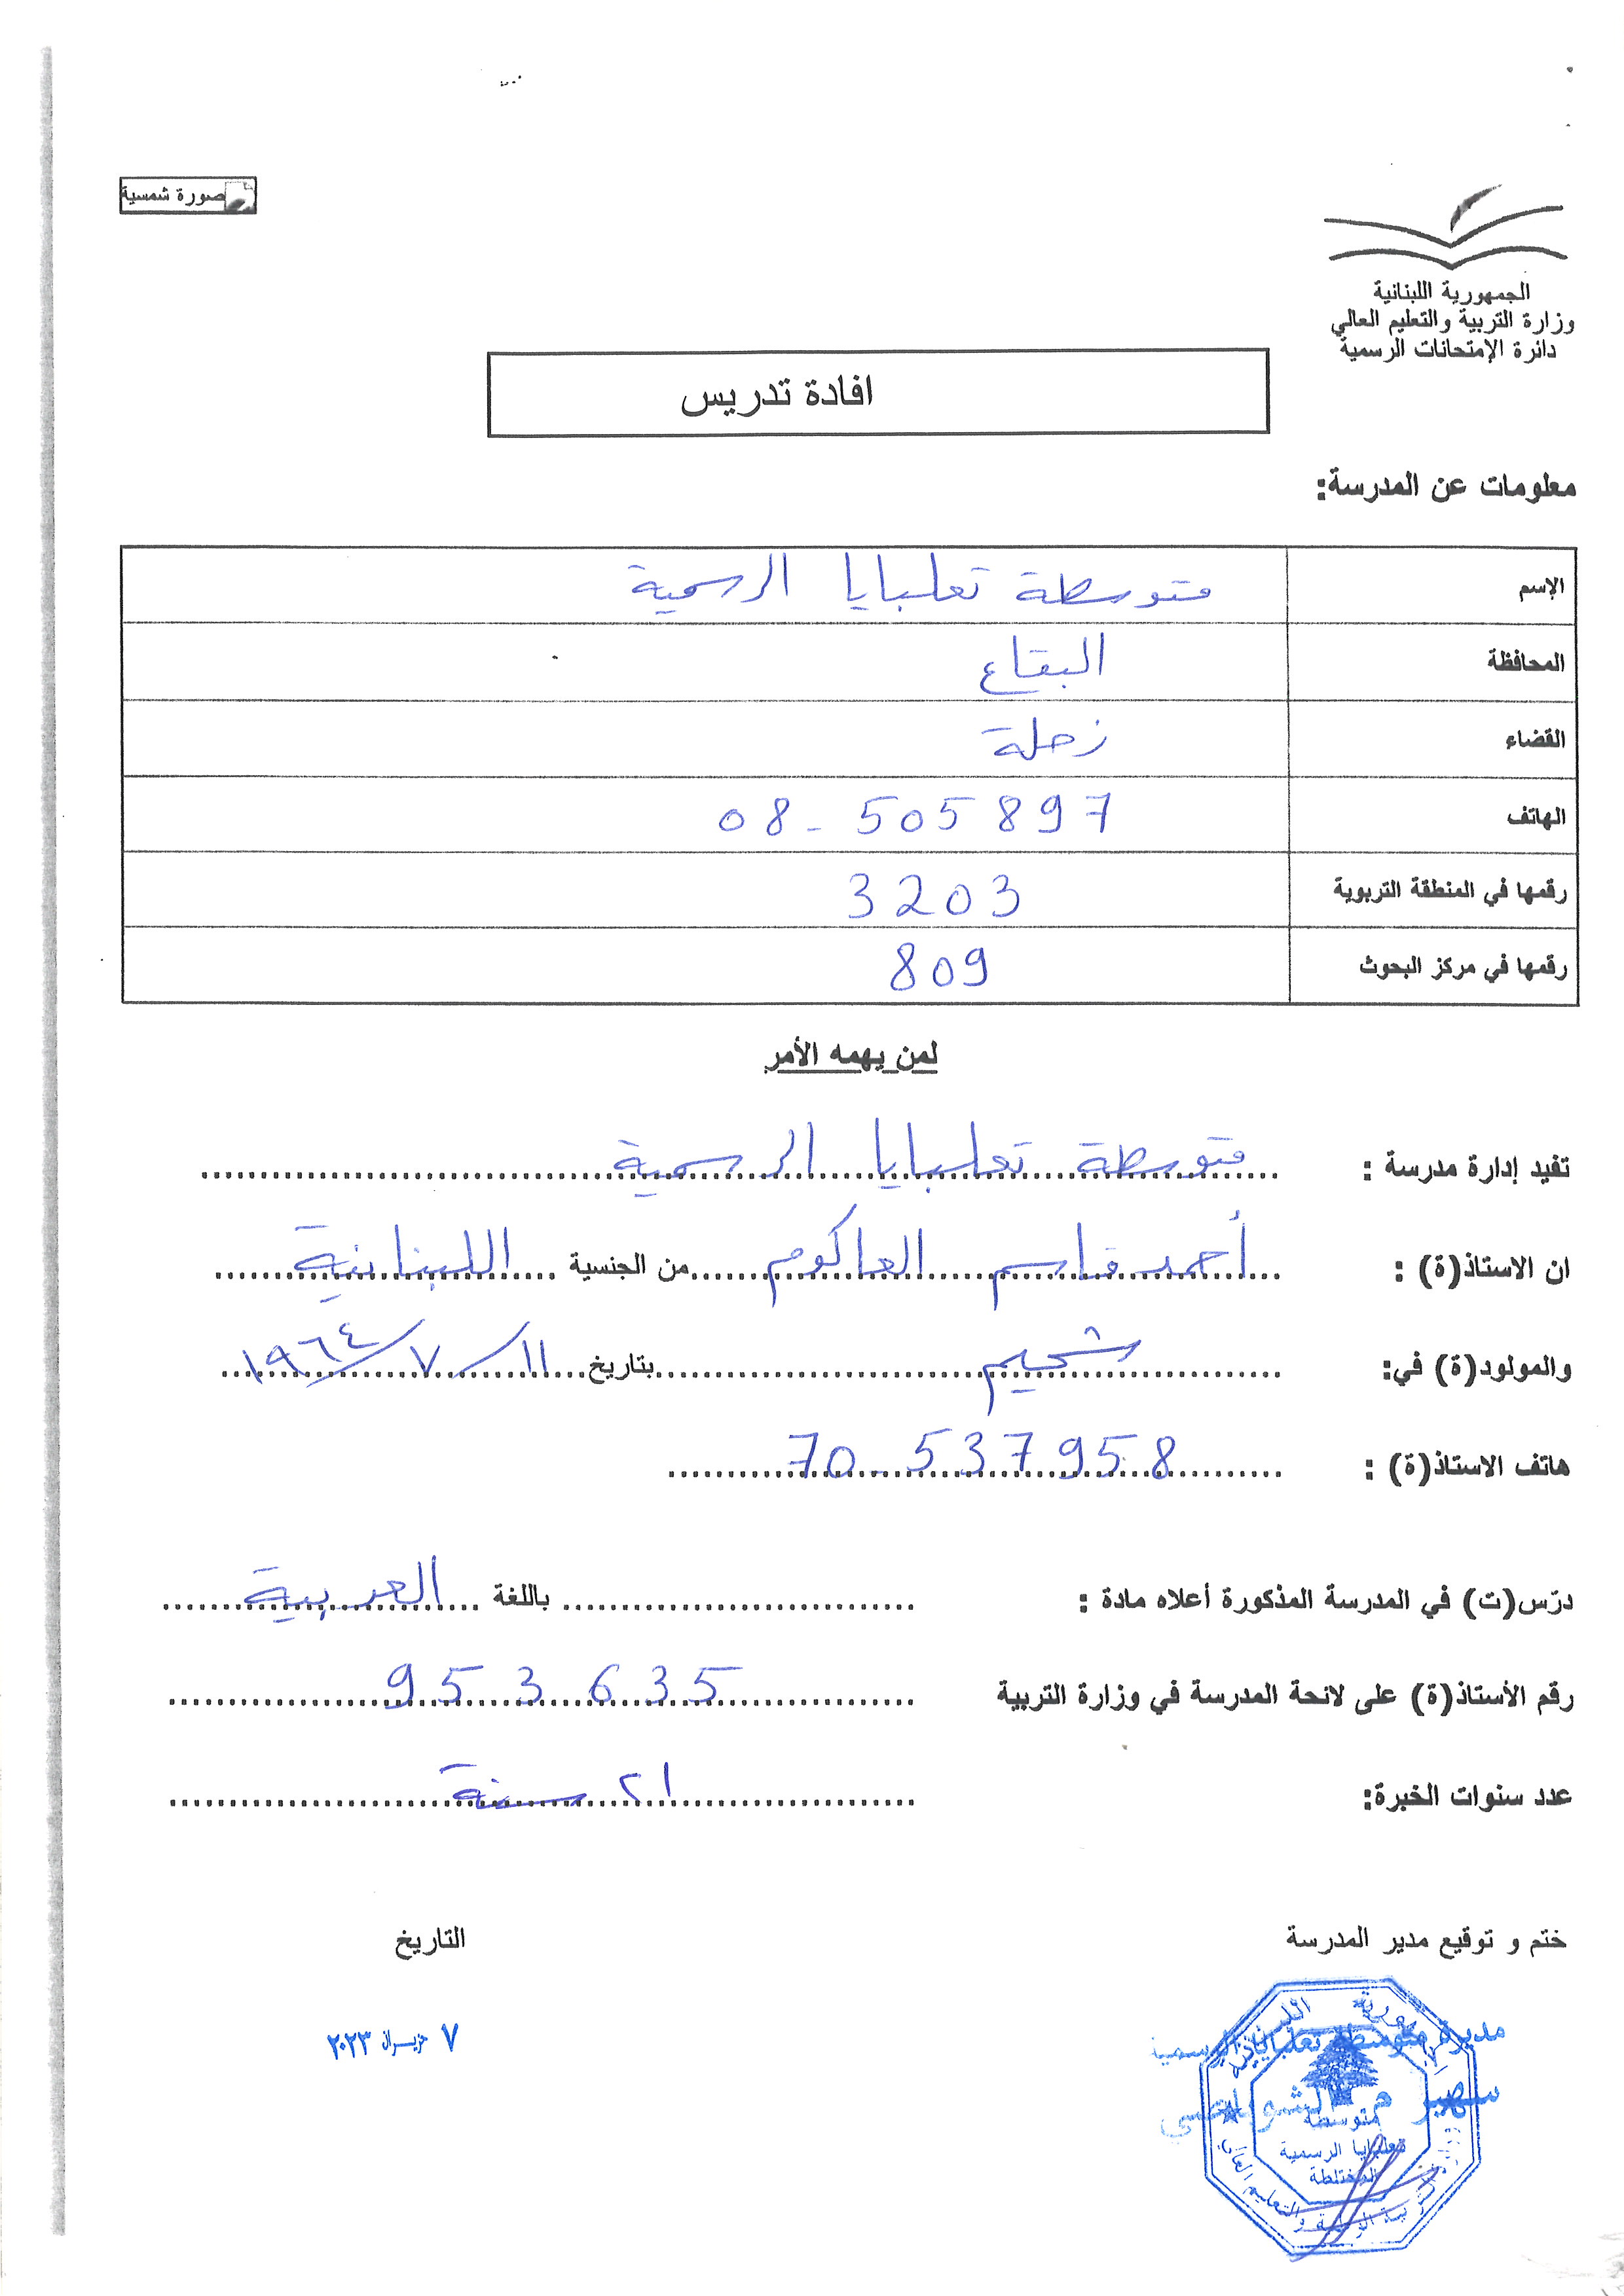 صورة شمسية
الجمهورية اللبنانية
وزارة التربية والتعليم العالي
دائرة الإمتحانات الرسمية
افادة تدريس
معلومات عن المدرسة:
الإسم متوسطة تعلبايا الرسمية
المحافظة البقاع
القضاء زحلة
الهاتف 08-505897
رقمها في المنطقة التربوية 3203
رقمها في مركز البحوث 809
لمن يهمه الأمر
تفيد إدارة مدرسة : متوسطة تعلبايا الرسمية
ان الاستاذ(ة) : أحمد قاسم العاكوم من الجنسية اللبنانية
والمولود(ة) في: شحيم بتاريخ ١١/٧/١٩٦٤
هاتف الاستاذ(ة) : 70-537958
درّس(ت) في المدرسة المذكورة أعلاه مادة : باللغة العربية
رقم الأستاذ(ة) على لائحة المدرسة في وزارة التربية 953635
عدد سنوات الخبرة: ٢١ سنة
ختم و توقيع مدير المدرسة التاريخ
٧ حزيران ٢٠٢٣
مديرة متوسطة تعلبايا الرسمية
سهير م
متوسطة
تعلبايا الرسمية
المختلطة